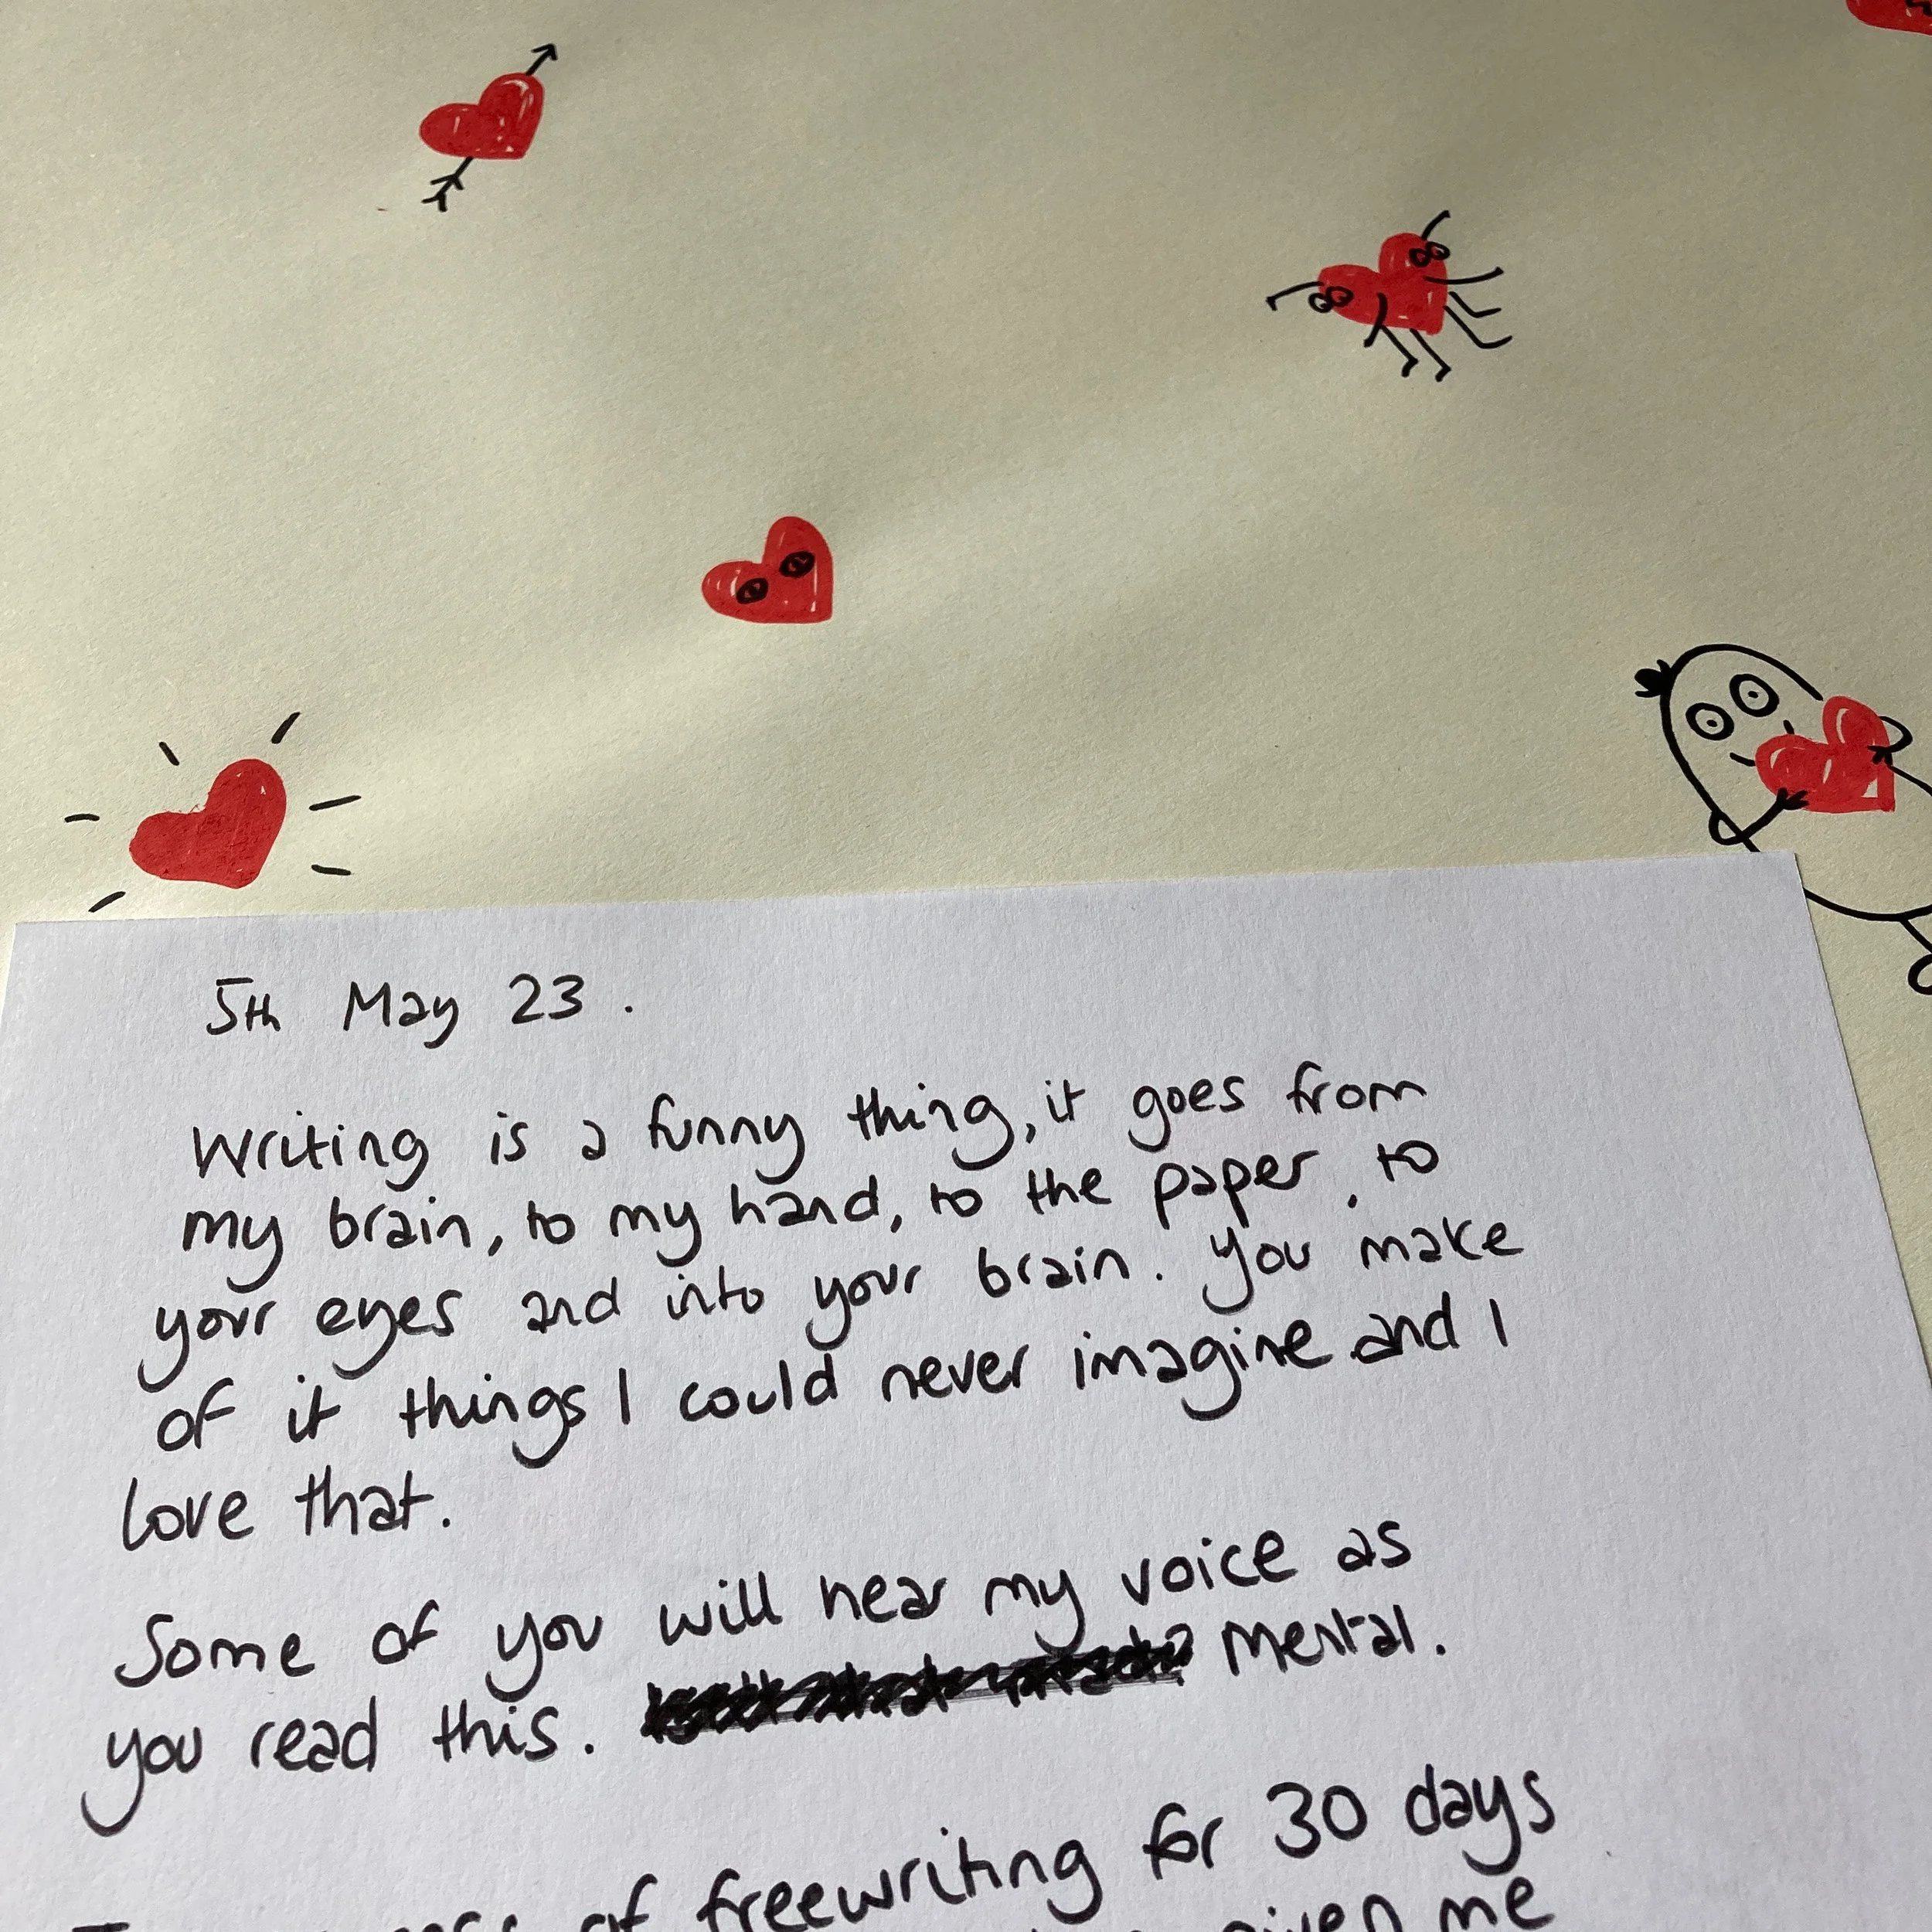 5th May 23.
Writing is a funny thing, it goes from
my brain, to my hand, to the paper, to
your eyes and into your brain. You make
of it things I could never imagine and I
love that.
Some of you will hear my voice as
you read this. mental.
of freewriting for 30 days
given me